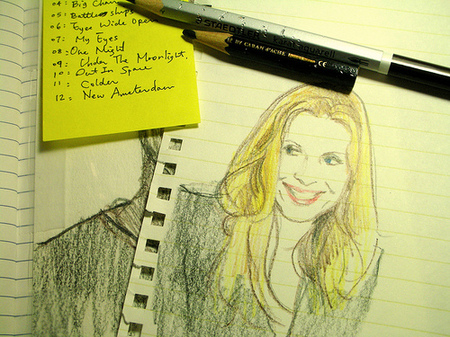 04: Big Chan
05: Battle ships
06: Eyes Wide Open
07: My Eyes
08: One Night
09: Under The Moonlight,
10: Out In Space
11: Colder
12: New Amsterdam
STAEDTLER
BY CARAN D'ACHE
CE